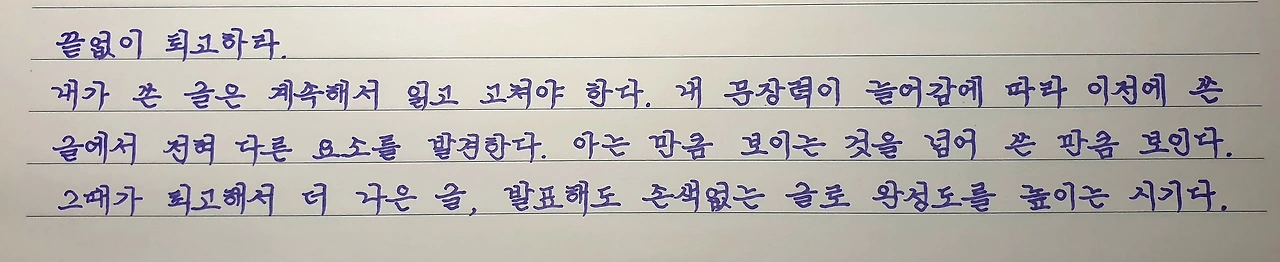 끝없이 퇴고하라.
내가 쓴 글은 계속해서 읽고 고쳐야 한다. 내 문장력이 늘어감에 따라 이전에 쓴
글에서 전혀 다른 요소를 발견한다. 아는 만큼 보이는 것을 넘어 쓴 만큼 보인다.
그때가 퇴고해서 더 나은 글, 발표해도 손색없는 글로 완성도를 높이는 시기다.